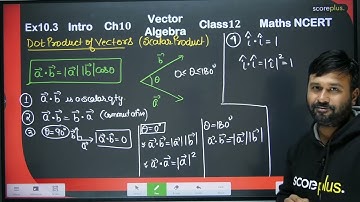 Ex10.3 Intro Ch10 Vector Algebra Class12 Maths NCERT
scoreplus.
Dot Product of Vectors (Scalar Product)
a⃗·b⃗ = |a⃗||b⃗|cosθ
b⃗
θ
a⃗
0≤θ≤180°
① a⃗·b⃗ is a scalar qty
② a⃗·b⃗ = b⃗·a⃗ (commutative)
③ θ=90° b⃗ a⃗ a⃗·b⃗ = 0
θ=0°
a⃗·b⃗ = |a⃗||b⃗|
a⃗·a⃗ = |a⃗|²
θ=180°
a⃗·b⃗ = -|a⃗||b⃗|
④ î·î = 1
î·î = |î|² = 1
scoreplus.